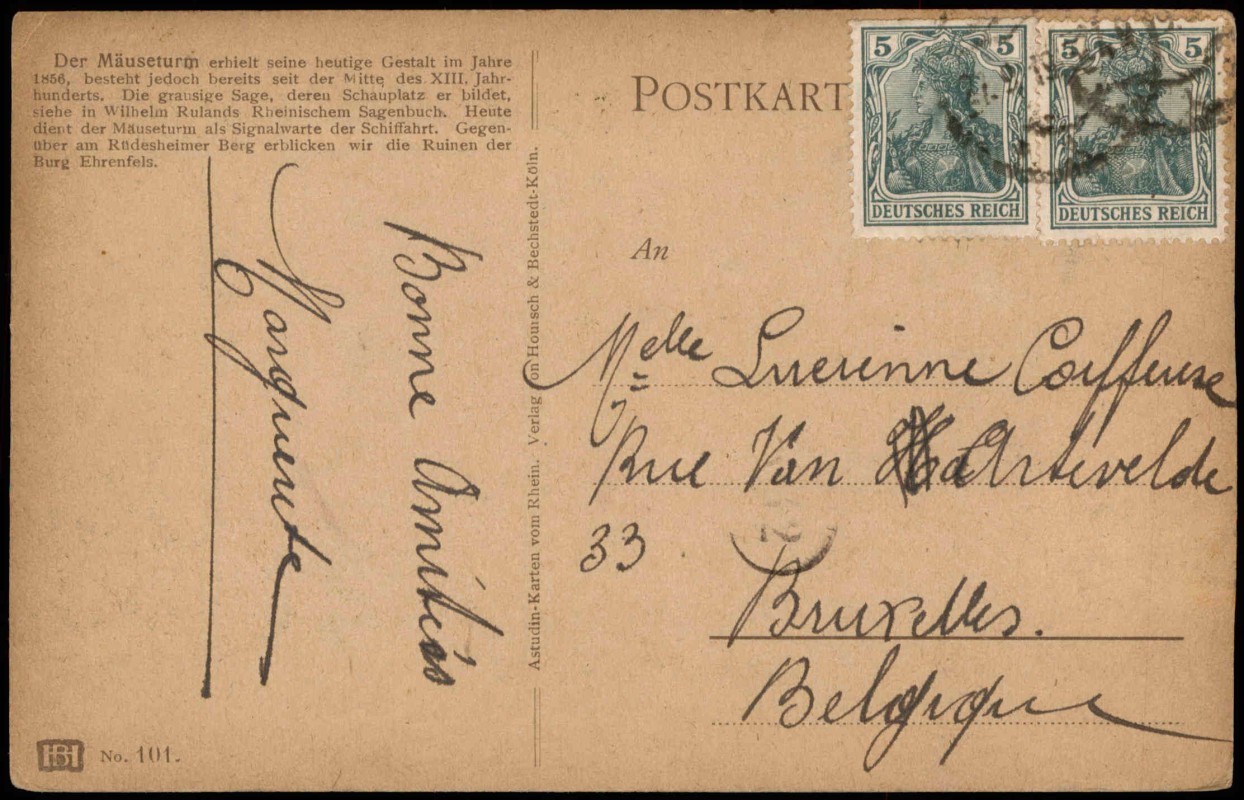 Der Mäuseturm erhielt seine heutige Gestalt im Jahre
1856, besteht jedoch bereits seit der Mitte des XIII. Jahr-
hunderts. Die grausige Sage, deren Schauplatz er bildet,
siehe in Wilhelm Rulands Rheinischem Sagenbuch. Heute
dient der Mäuseturm als Signalwarte der Schiffahrt. Gegen-
über am Rüdesheimer Berg erblicken wir die Ruinen der
Burg Ehrenfels.
Bonne Amitiés
Marguerite
HB No. 101.
Astudin-Karten vom Rhein. Verlag von Hoursch & Bechstedt-Köln.
POSTKART
5 5
DEUTSCHES REICH
5 5
DEUTSCHES REICH
An
Melle Lucienne Coiffeuse
Rue Van Artevelde
33
Bruxelles.
Belgique